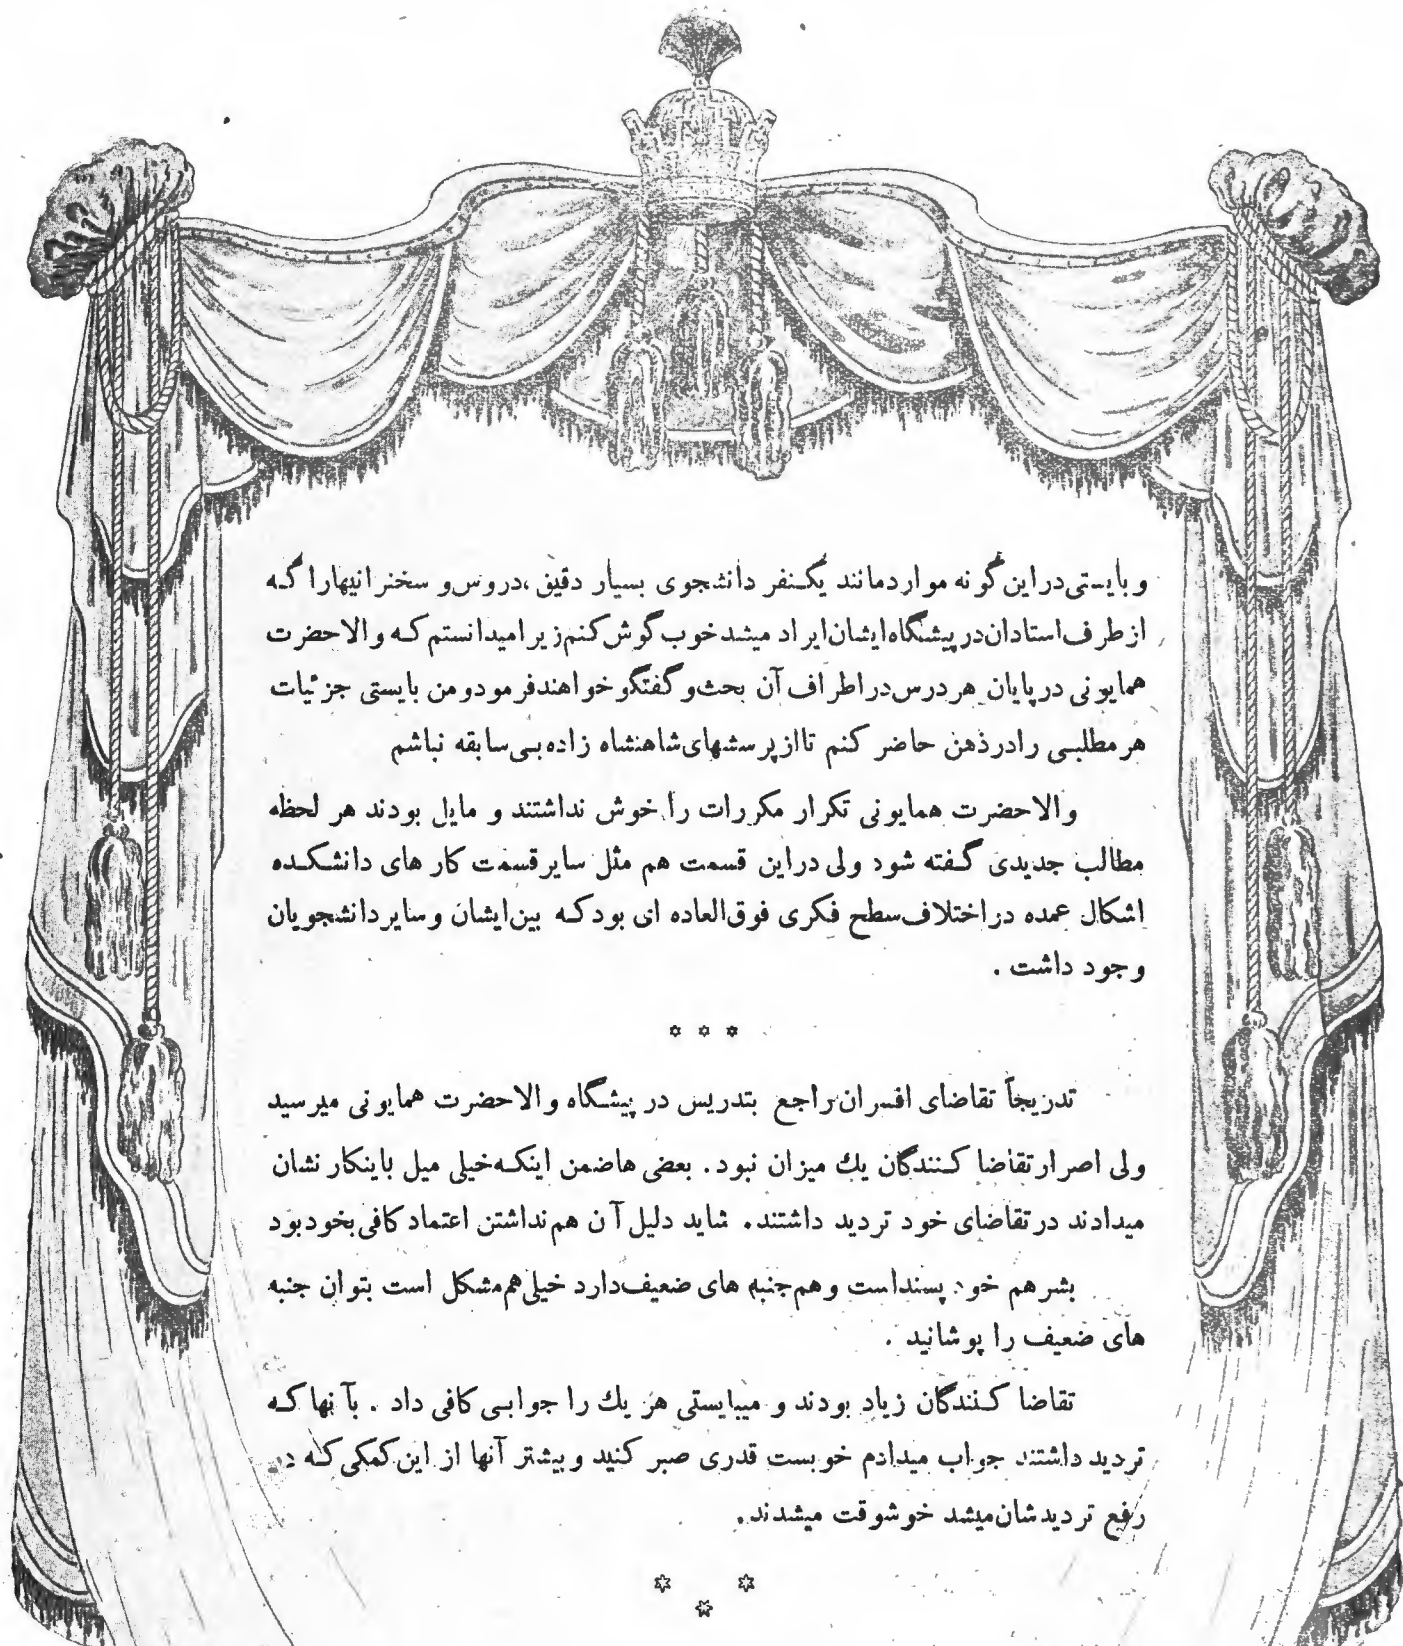 و بایستی در این گونه موارد مانند یکنفر دانشجوی بسیار دقیق ،دروس و سخنرانیهارا که
از طرف استادان در پیشگاه ایشان ایراد میشد خوب گوش کنم زیرا میدانستم که والاحضرت
همایونی در پایان هر درس در اطراف آن بحث و گفتگو خواهند فرمود و من بایستی جزئیات
هر مطلبی را در ذهن حاضر کنم تا از پرسشهای شاهنشاه زاده بی سابقه نباشم
والاحضرت همایونی تکرار مکررات را خوش نداشتند و مایل بودند هر لحظه
مطالب جدیدی گفته شود ولی در این قسمت هم مثل سایر قسمت کار های دانشکده
اشکال عمده در اختلاف سطح فکری فوق العاده ای بود که بین ایشان و سایر دانشجویان
وجود داشت .
* * *
تدریجاً تقاضای افسران راجع بتدریس در پیشگاه والاحضرت همایونی میرسید
ولی اصرار تقاضا کنندگان یك میزان نبود . بعضی ها ضمن اینکه خیلی میل باینکار نشان
میدادند در تقاضای خود تردید داشتند . شاید دلیل آن هم نداشتن اعتماد کافی بخود بود
بشر هم خود پسند است و هم جنبه های ضعیف دارد خیلی هم مشکل است بتوان جنبه
های ضعیف را پوشانید .
تقاضا کنندگان زیاد بودند و میبایستی هر یك را جوابی کافی داد . بآ نها که
تردید داشتند جواب میدادم خوبست قدری صبر کنید و بیشتر آنها از این کمکی که در
رفع تردیدشان میشد خوشوقت میشدند .
* * *